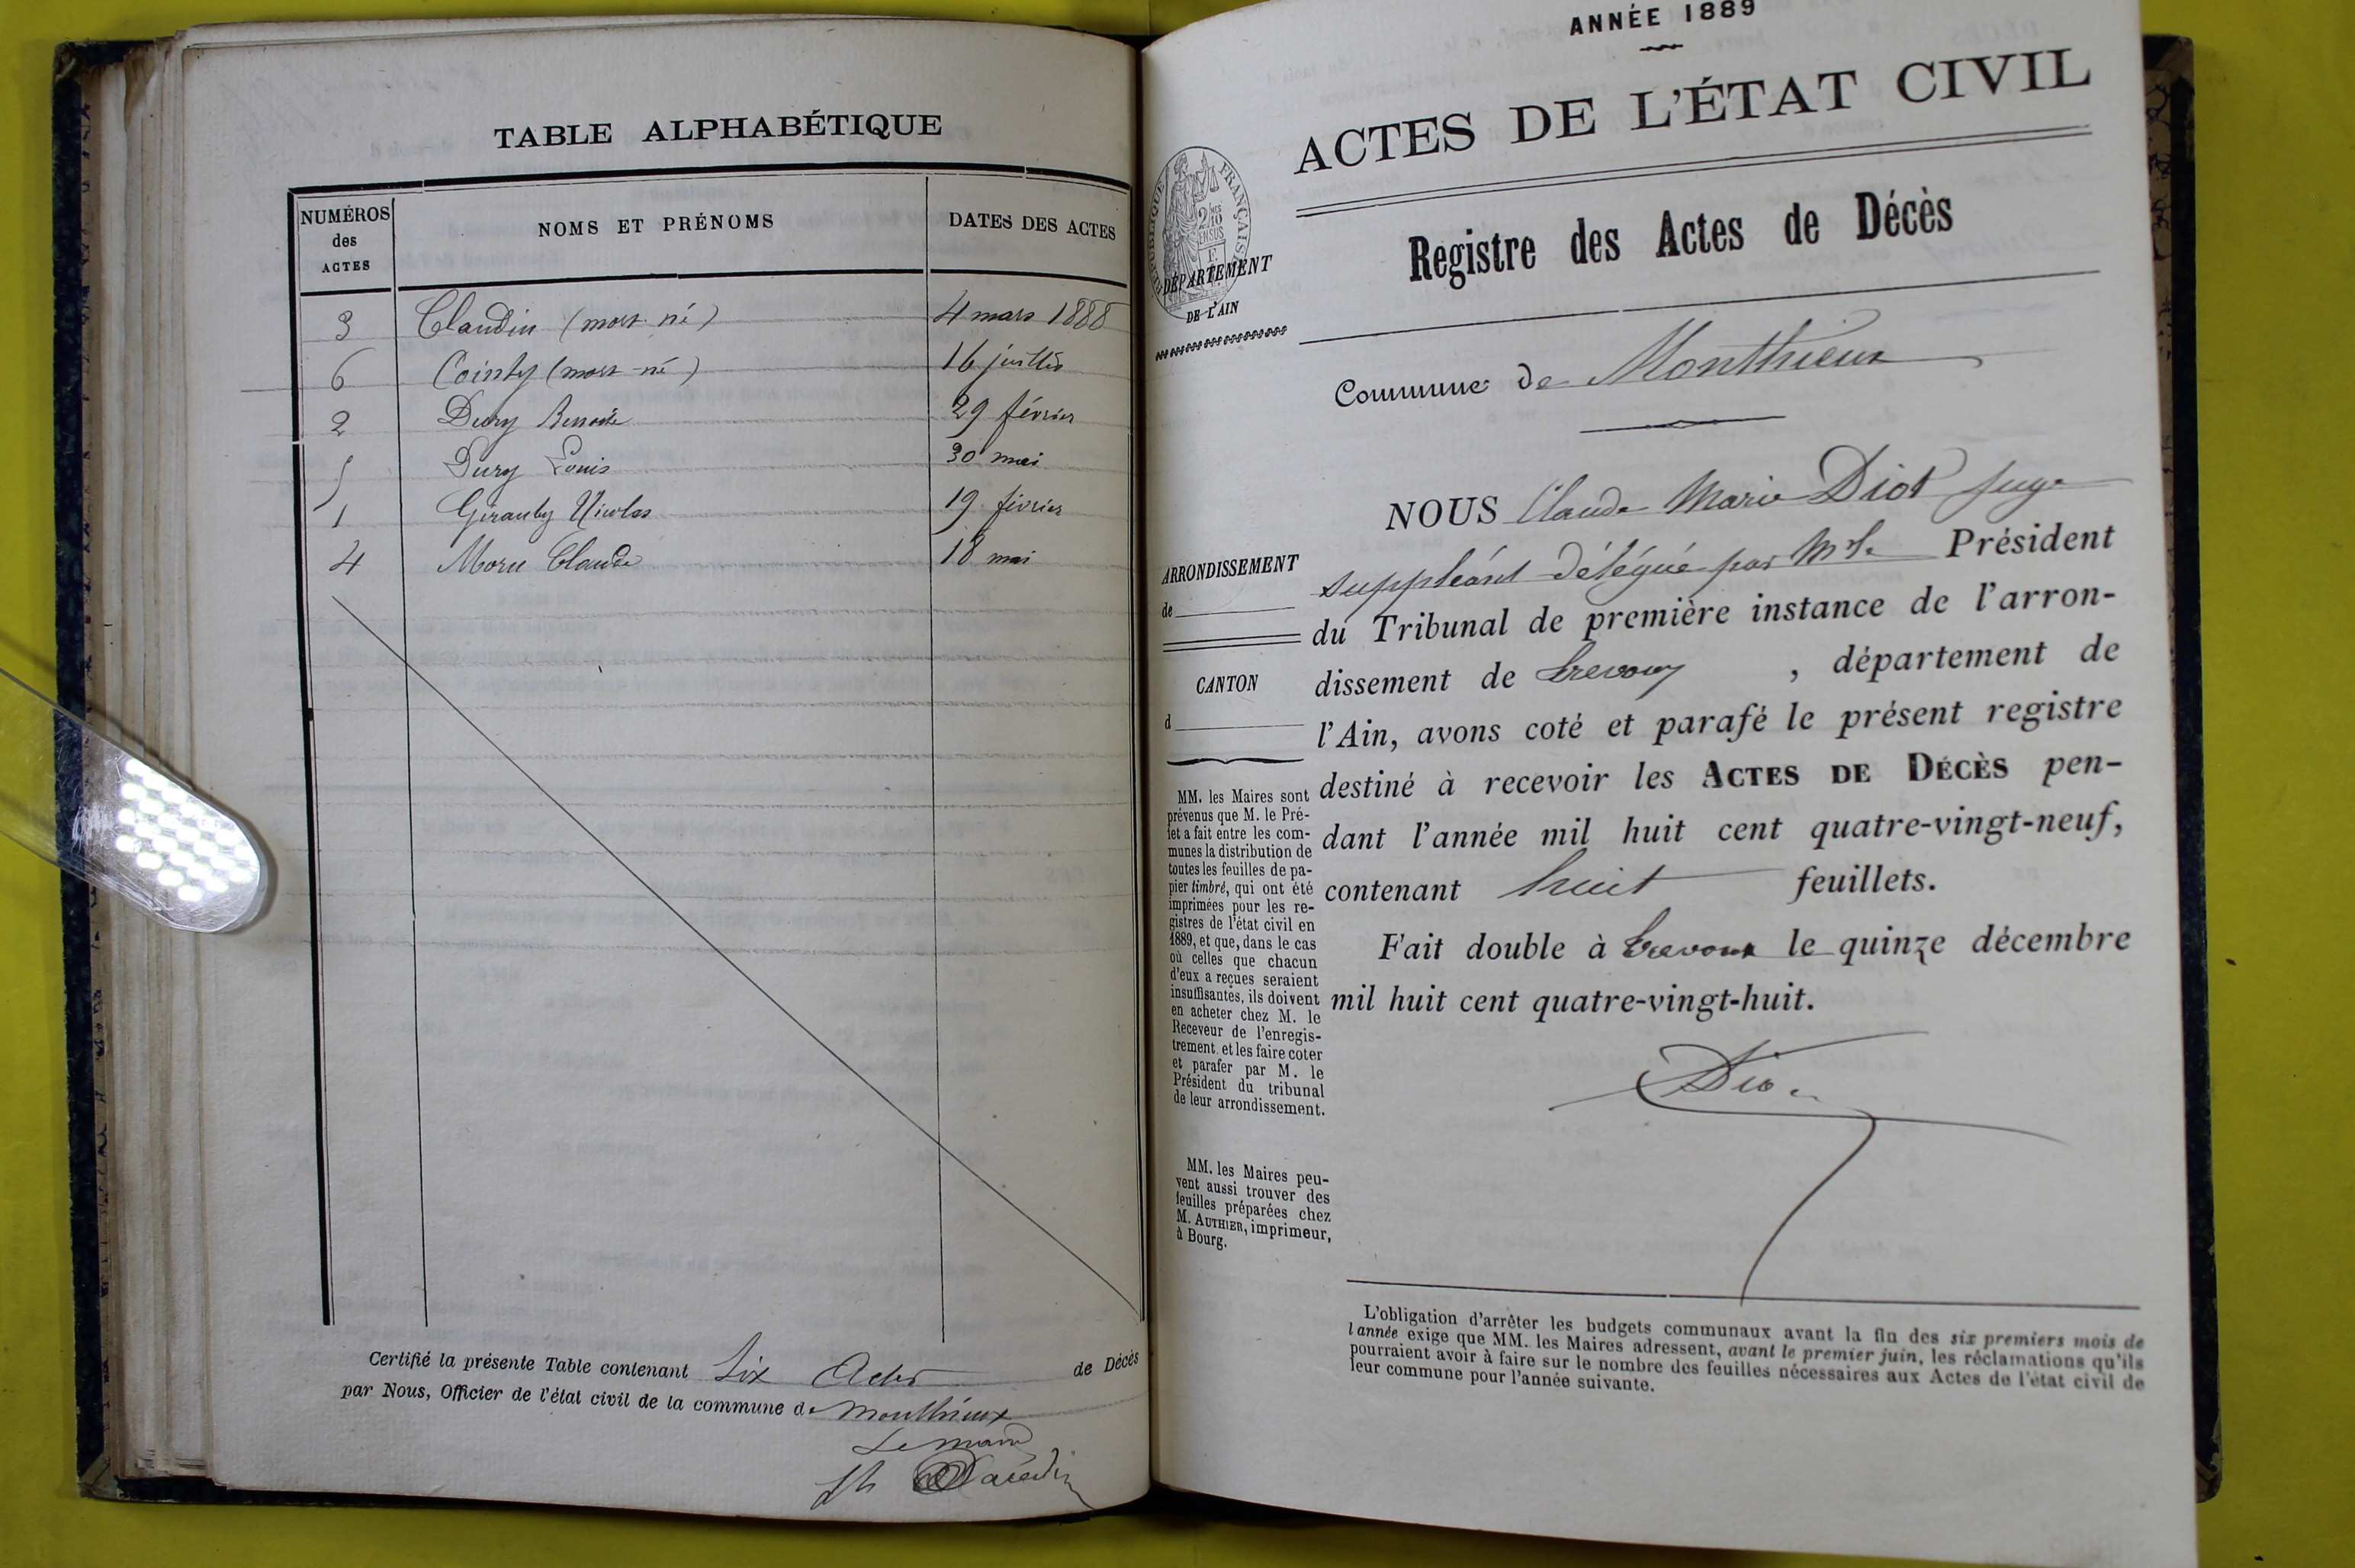 TABLE ALPHABÉTIQUE
NUMÉROS des ACTES NOMS ET PRÉNOMS DATES DES ACTES
3 Claudin (mort né) 4 mars 1888
6 Cointy (mort-né) 16 juillet
2 Dury Benoite 29 février
5 Dury Louis 30 mai
1 Girauby Nicolas 19 février
4 Moru Claude 18 mai
Certifié la présente Table contenant Six Actes de Décès
par Nous, Officier de l'état civil de la commune de Monthieux
Le maire
ANNÉE 1889
ACTES DE L'ÉTAT CIVIL
RÉPUBLIQUE FRANÇAISE
DÉPARTEMENT
DE L'AIN
Registre des Actes de Décès
Commune de Monthieux
NOUS Claude Marie Diot juge
suppléant délégué par Mr le Président
du Tribunal de première instance de l'arron-
dissement de Trevoux, département de
l'Ain, avons coté et parafé le présent registre
destiné à recevoir les ACTES DE DÉCÈS pen-
dant l'année mil huit cent quatre-vingt-neuf,
contenant huit feuillets.
Fait double à Trevoux le quinze décembre
mil huit cent quatre-vingt-huit.
Diot
ARRONDISSEMENT
de
CANTON
d
MM. les Maires sont
prévenus que M. le Pré-
fet a fait entre les com-
munes la distribution de
toutes les feuilles de pa-
pier timbré, qui ont été
imprimées pour les re-
gistres de l'état civil en
1889, et que, dans le cas
où celles que chacun
d'eux a reçues seraient
insuffisantes, ils doivent
en acheter chez M. le
Receveur de l'enregis-
trement et les faire coter
et parafer par M. le
Président du tribunal
de leur arrondissement.
MM. les Maires peu-
vent aussi trouver des
feuilles préparées chez
M. AUTHIER, imprimeur,
à Bourg.
L'obligation d'arrêter les budgets communaux avant la fin des six premiers mois de
l'année exige que MM. les Maires adressent, avant le premier juin, les réclamations qu'ils
pourraient avoir à faire sur le nombre des feuilles nécessaires aux Actes de l'état civil de
leur commune pour l'année suivante.